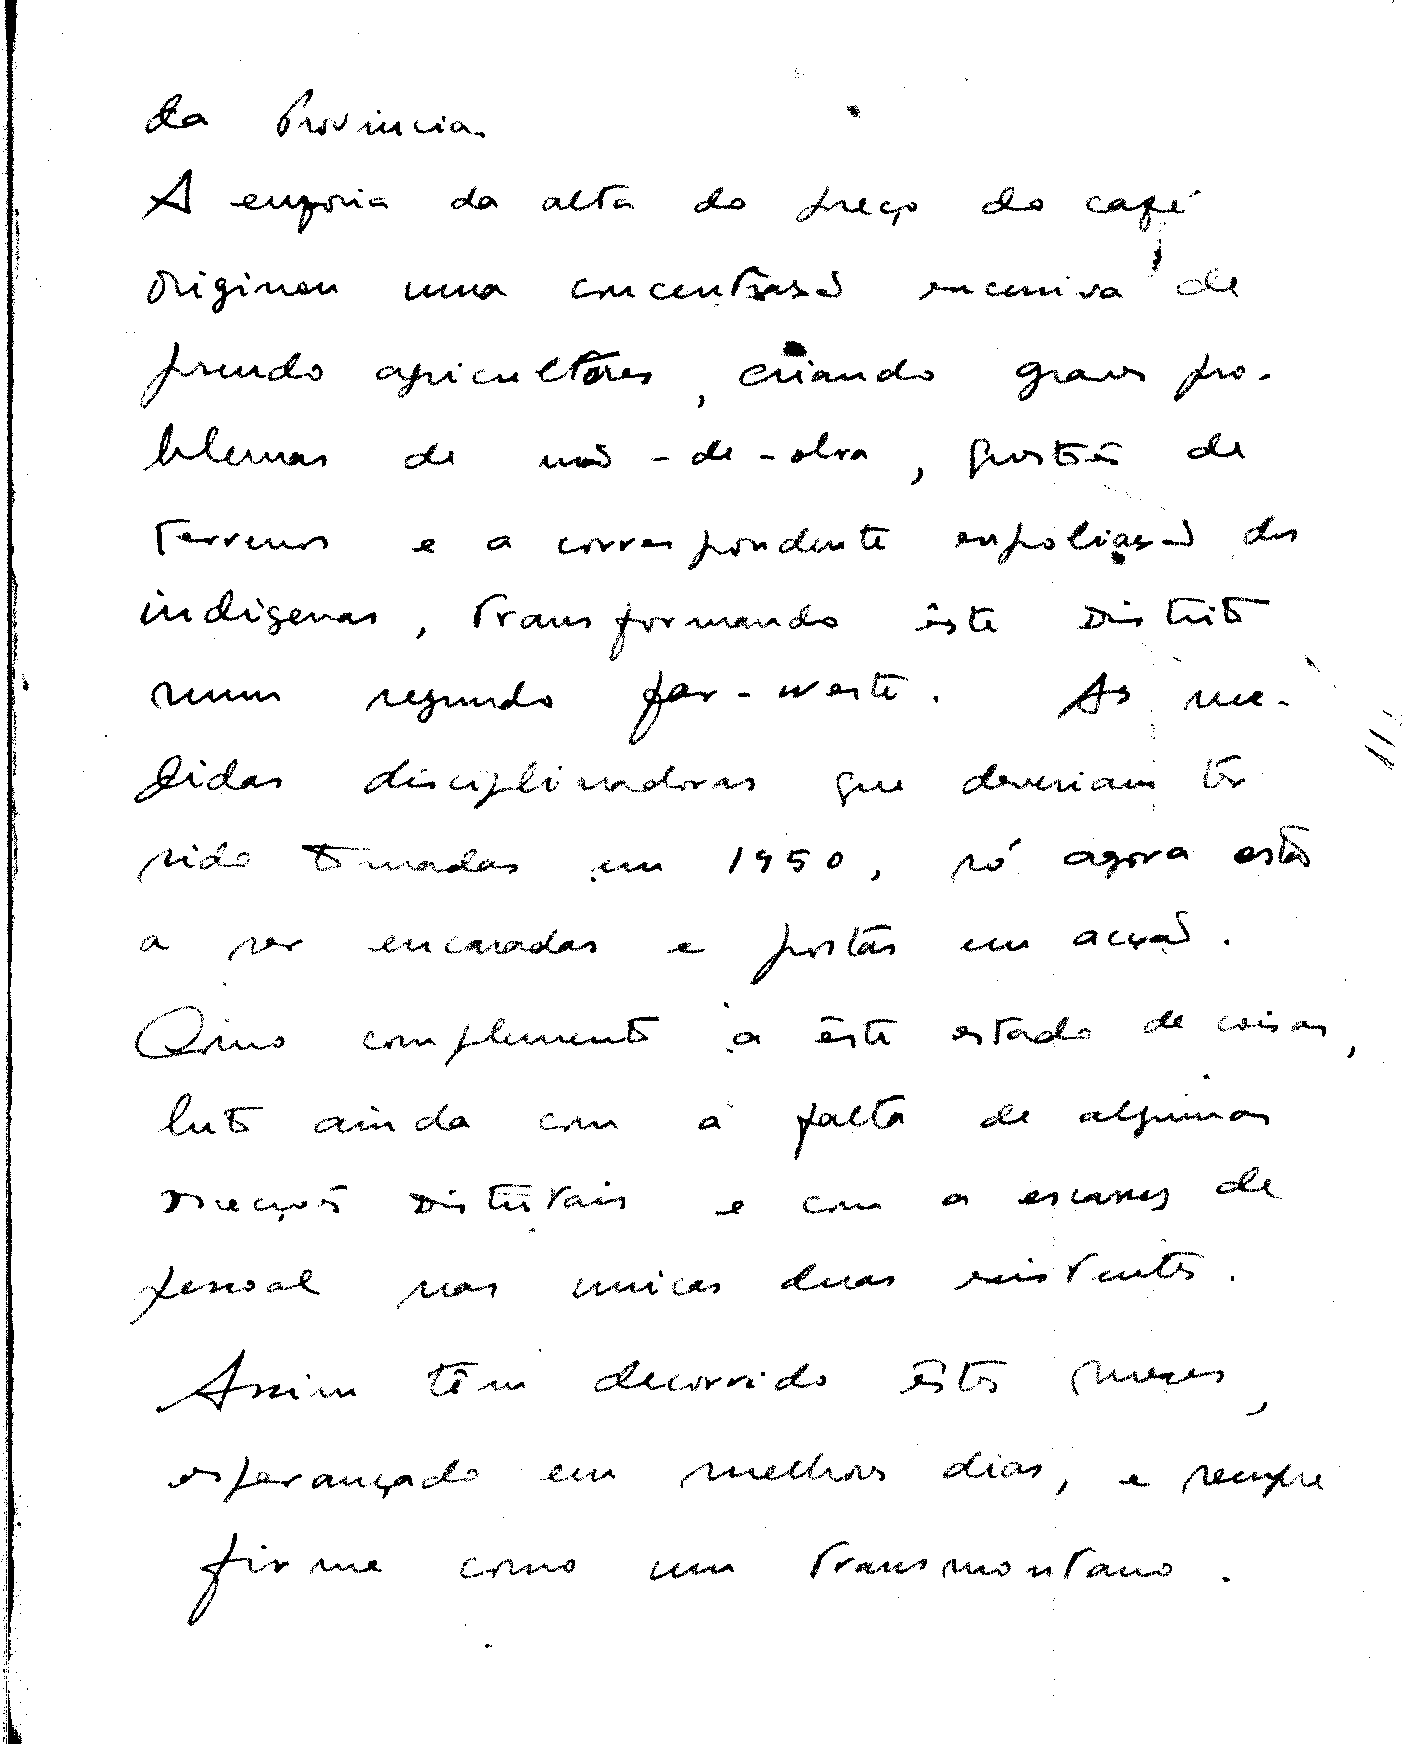 da Província.
A euforia da alta do preço do café
originou uma concentração excessiva de
pseudo agricultores, criando graves pro-
blemas de mão-de-obra, questão de
terrenos e a correspondente espoliação dos
indígenas, transformando êste Distrito
num segundo far-west. As me-
didas disciplinadoras que deveriam ter
sido tomadas em 1950, só agora estão
a ser encaradas e postas em acção.
Como complemento a êste estado de coisas,
luto ainda com a falta de algumas
Direcções Distritais e com a escassez de
pessoal nas unicas duas existentes.
Assim têm decorrido êstes meses,
esperançado em melhores dias, e sempre
firme como um transmontano.